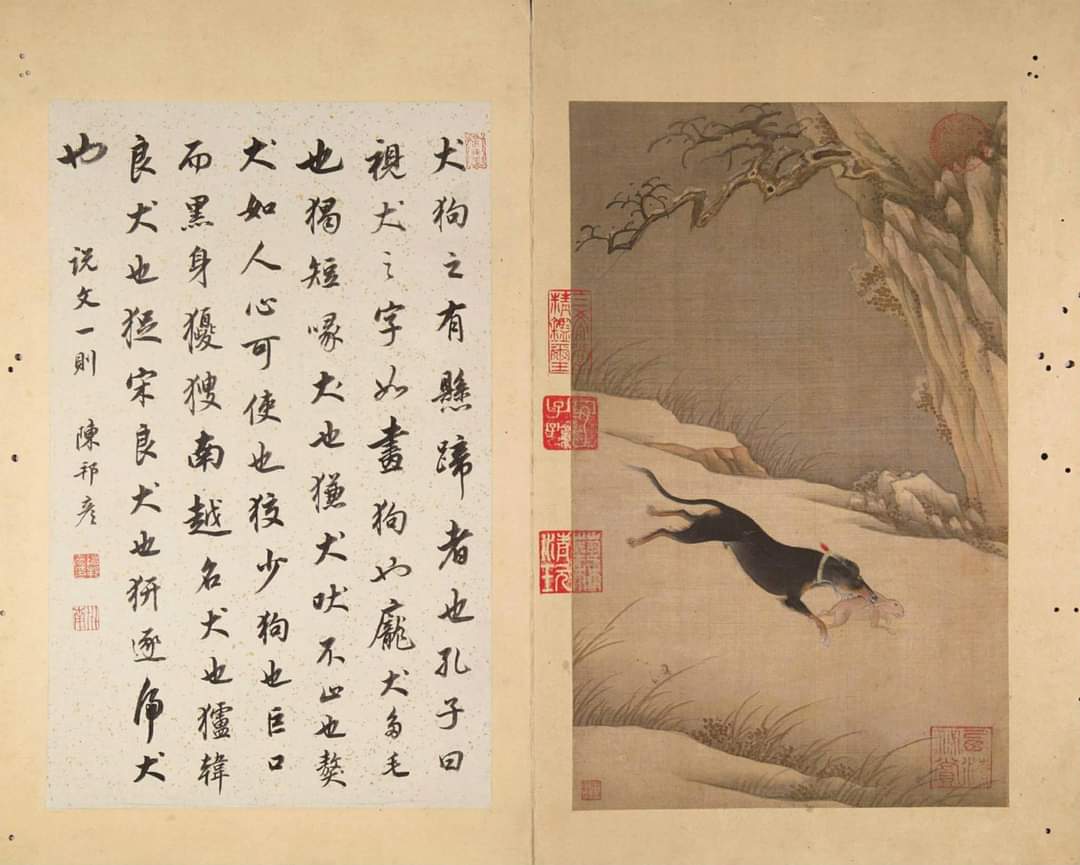 犬狗之有懸蹄者也孔子曰
視犬之字如畫狗也龐犬多毛
也猲短喙犬也㺌犬吠不止也獒
犬如人心可使也狡少狗也巨口
而黑身獿獀南越名犬也獹韓
良犬也㹱宋良犬也逐虎犬
也
說文一則 陳邦彥
三希堂精鑑璽
宜子孫